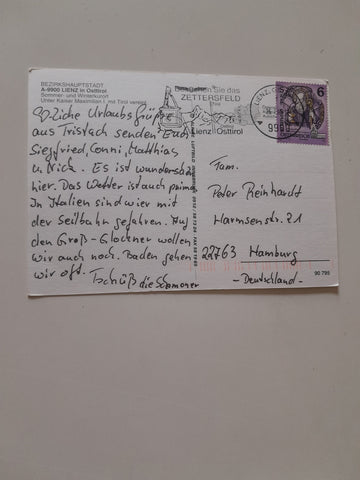 BEZIRKSHAUPTSTADT
A-9900 LIENZ in Osttirol
Sommer- und Winterkurort
Unter Kaiser Maximilian I. mit Tirol vereint
Besuchen Sie das
ZETTERSFELD
Lienz Osttirol
LIENZ
9900
6
Urlaubsgrüße
aus Tristach senden Euch
Siegfried, Conni, Matthias
u. Nick. Es ist wunderschön
hier. Das Wetter ist auch prima.
In Italien sind wir mit
der Seilbahn gefahren. Auf
den Groß-Glockner wollen
wir auch noch. Baden gehen
wir oft. Tschüß die
Fam.
Peter Reinhardt
Harmsenstr. 21
22763 Hamburg
- Deutschland -
90 795